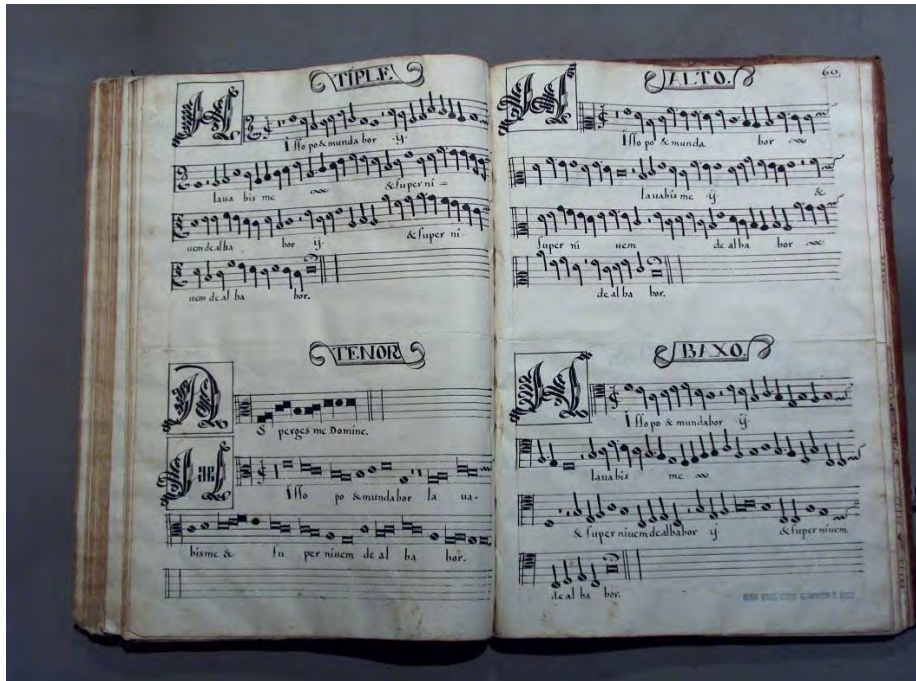 TIPLE.
Issopo & munda bor ·ij
laua bis me & super ni =
uem de al ba bor ij. & super ni-
uem de al ba bor.
TENOR
A
S perges me Domine.
Isso po & mundabor la ua-
bis me & su per niuem de al ba bor.
ALTO.
60,
Isso po & munda bor
lauabis me ij &
super ni uem de al ba bor
de al ba bor.
BAXO.
Isso po & mundabor ij
lauabis me
& super niuem dealbabor ij & super niuem
de al ba bor.